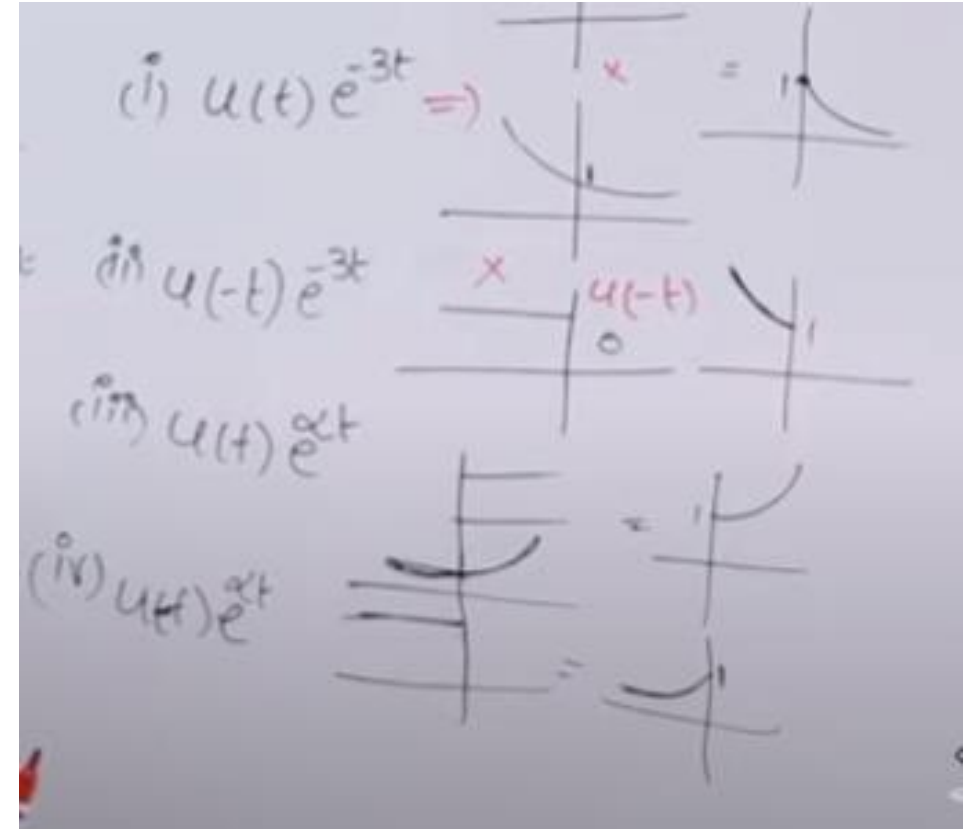 (i) u(t) e^-3t =) x = 1
1
(ii) u(-t) e^-3t x u(-t) 1
0
(iii) u(t) e^αt
= 1
(iv) u(-t) e^αt
= 1